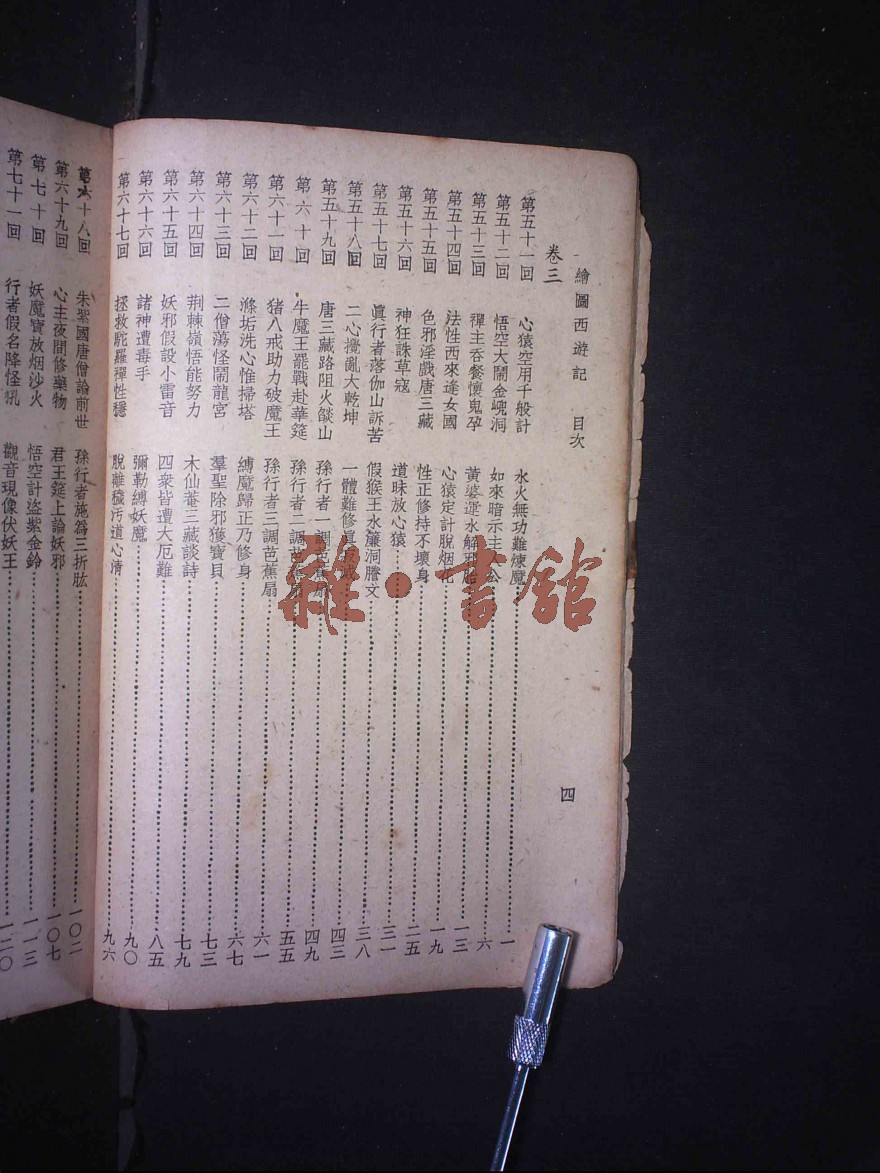 繪圖西遊記 目次 四
卷三
第五十一回 心猿空用千般計 水火無功難煉魔 一
第五十二回 悟空大鬧金𡺎洞 如來暗示主人公 六
第五十三回 禪主吞餐懷鬼孕 黃婆運水解邪胎 一三
第五十四回 法性西來逢女國 心猿定計脫烟花 一九
第五十五回 色邪淫戲唐三藏 性正修持不壞身 二五
第五十六回 神狂誅草寇 道昧放心猿 三一
第五十七回 眞行者落伽山訴苦 假猴王水簾洞謄文 三八
第五十八回 二心攪亂大乾坤 一體難修眞寂滅 四三
第五十九回 唐三藏路阻火燄山 孫行者一調芭蕉扇 四九
第六十回 牛魔王罷戰赴華筵 孫行者二調芭蕉扇 五五
第六十一回 猪八戒助力破魔王 孫行者三調芭蕉扇 六一
第六十二回 滌垢洗心惟掃塔 縛魔歸正乃修身 六七
第六十三回 二僧蕩怪鬧龍宮 羣聖除邪獲寶貝 七三
第六十四回 荆棘嶺悟能努力 木仙菴三藏談詩 七九
第六十五回 妖邪假設小雷音 四衆皆遭大厄難 八五
第六十六回 諸神遭毒手 彌勒縛妖魔 九〇
第六十七回 拯救駝羅禪性穩 脫離穢污道心淸 九六
第六十八回 朱紫國唐僧論前世 孫行者施爲三折肱 一〇二
第六十九回 心主夜間修藥物 君王筵上論妖邪 一〇七
第七十回 妖魔寶放烟沙火 悟空計盜紫金鈴 一一三
第七十一回 行者假名降怪犼 觀音現像伏妖王 一二〇
雜·書館